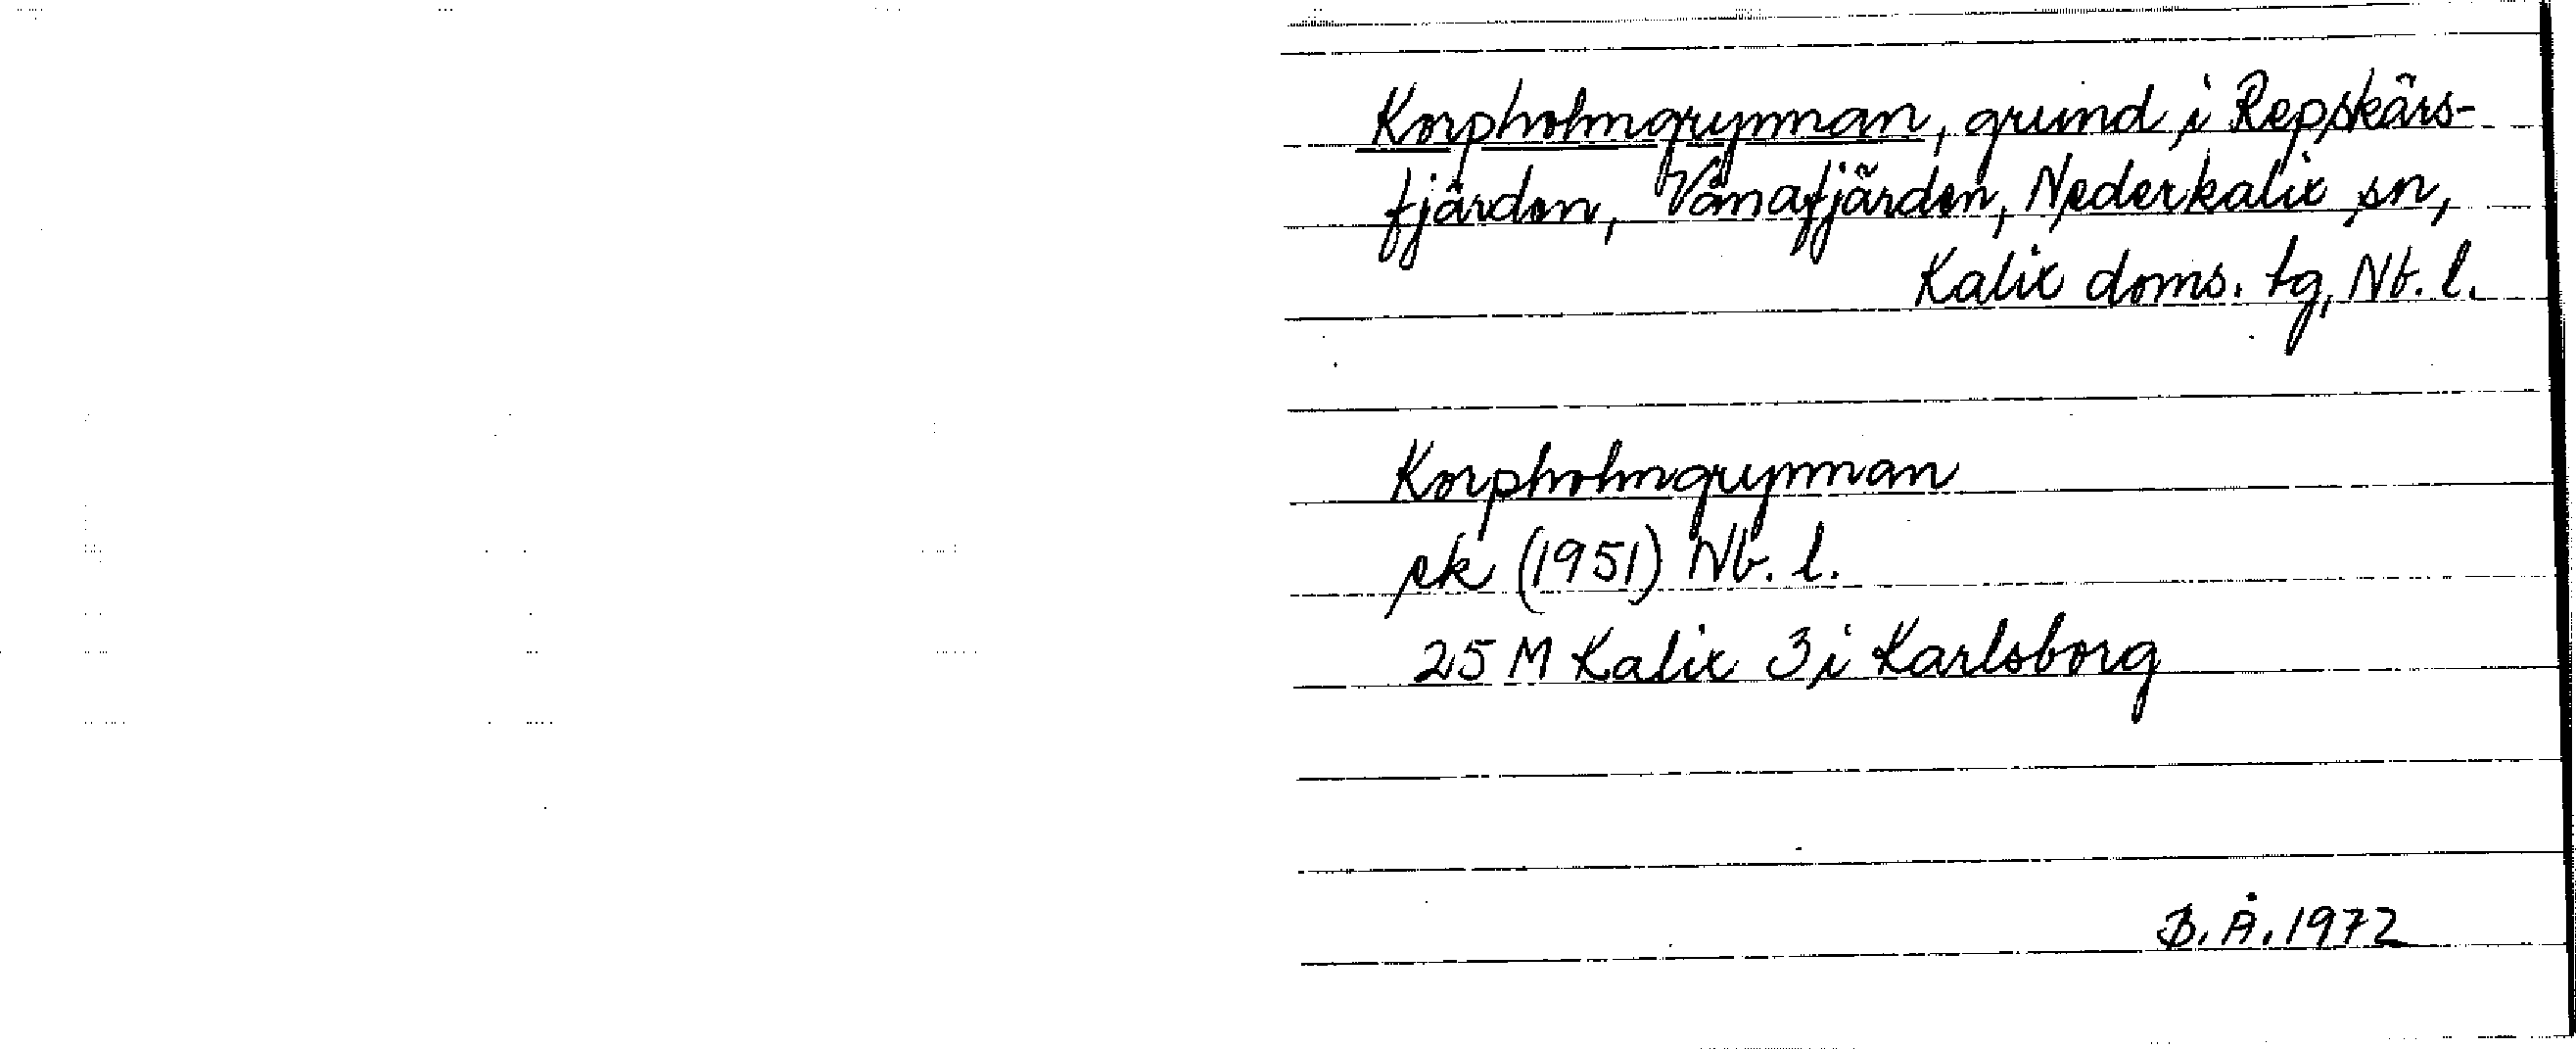 Korpholmgrynnan, grund i Repskärs-
fjärden, Vånafjärden, Nederkalix sn,
Kalix doms. tg, Nb. l.
Korpholmgrynnan
ek (1951) Nb. l.
25 M Kalix 3 i Karlsborg
B. Å. 1972